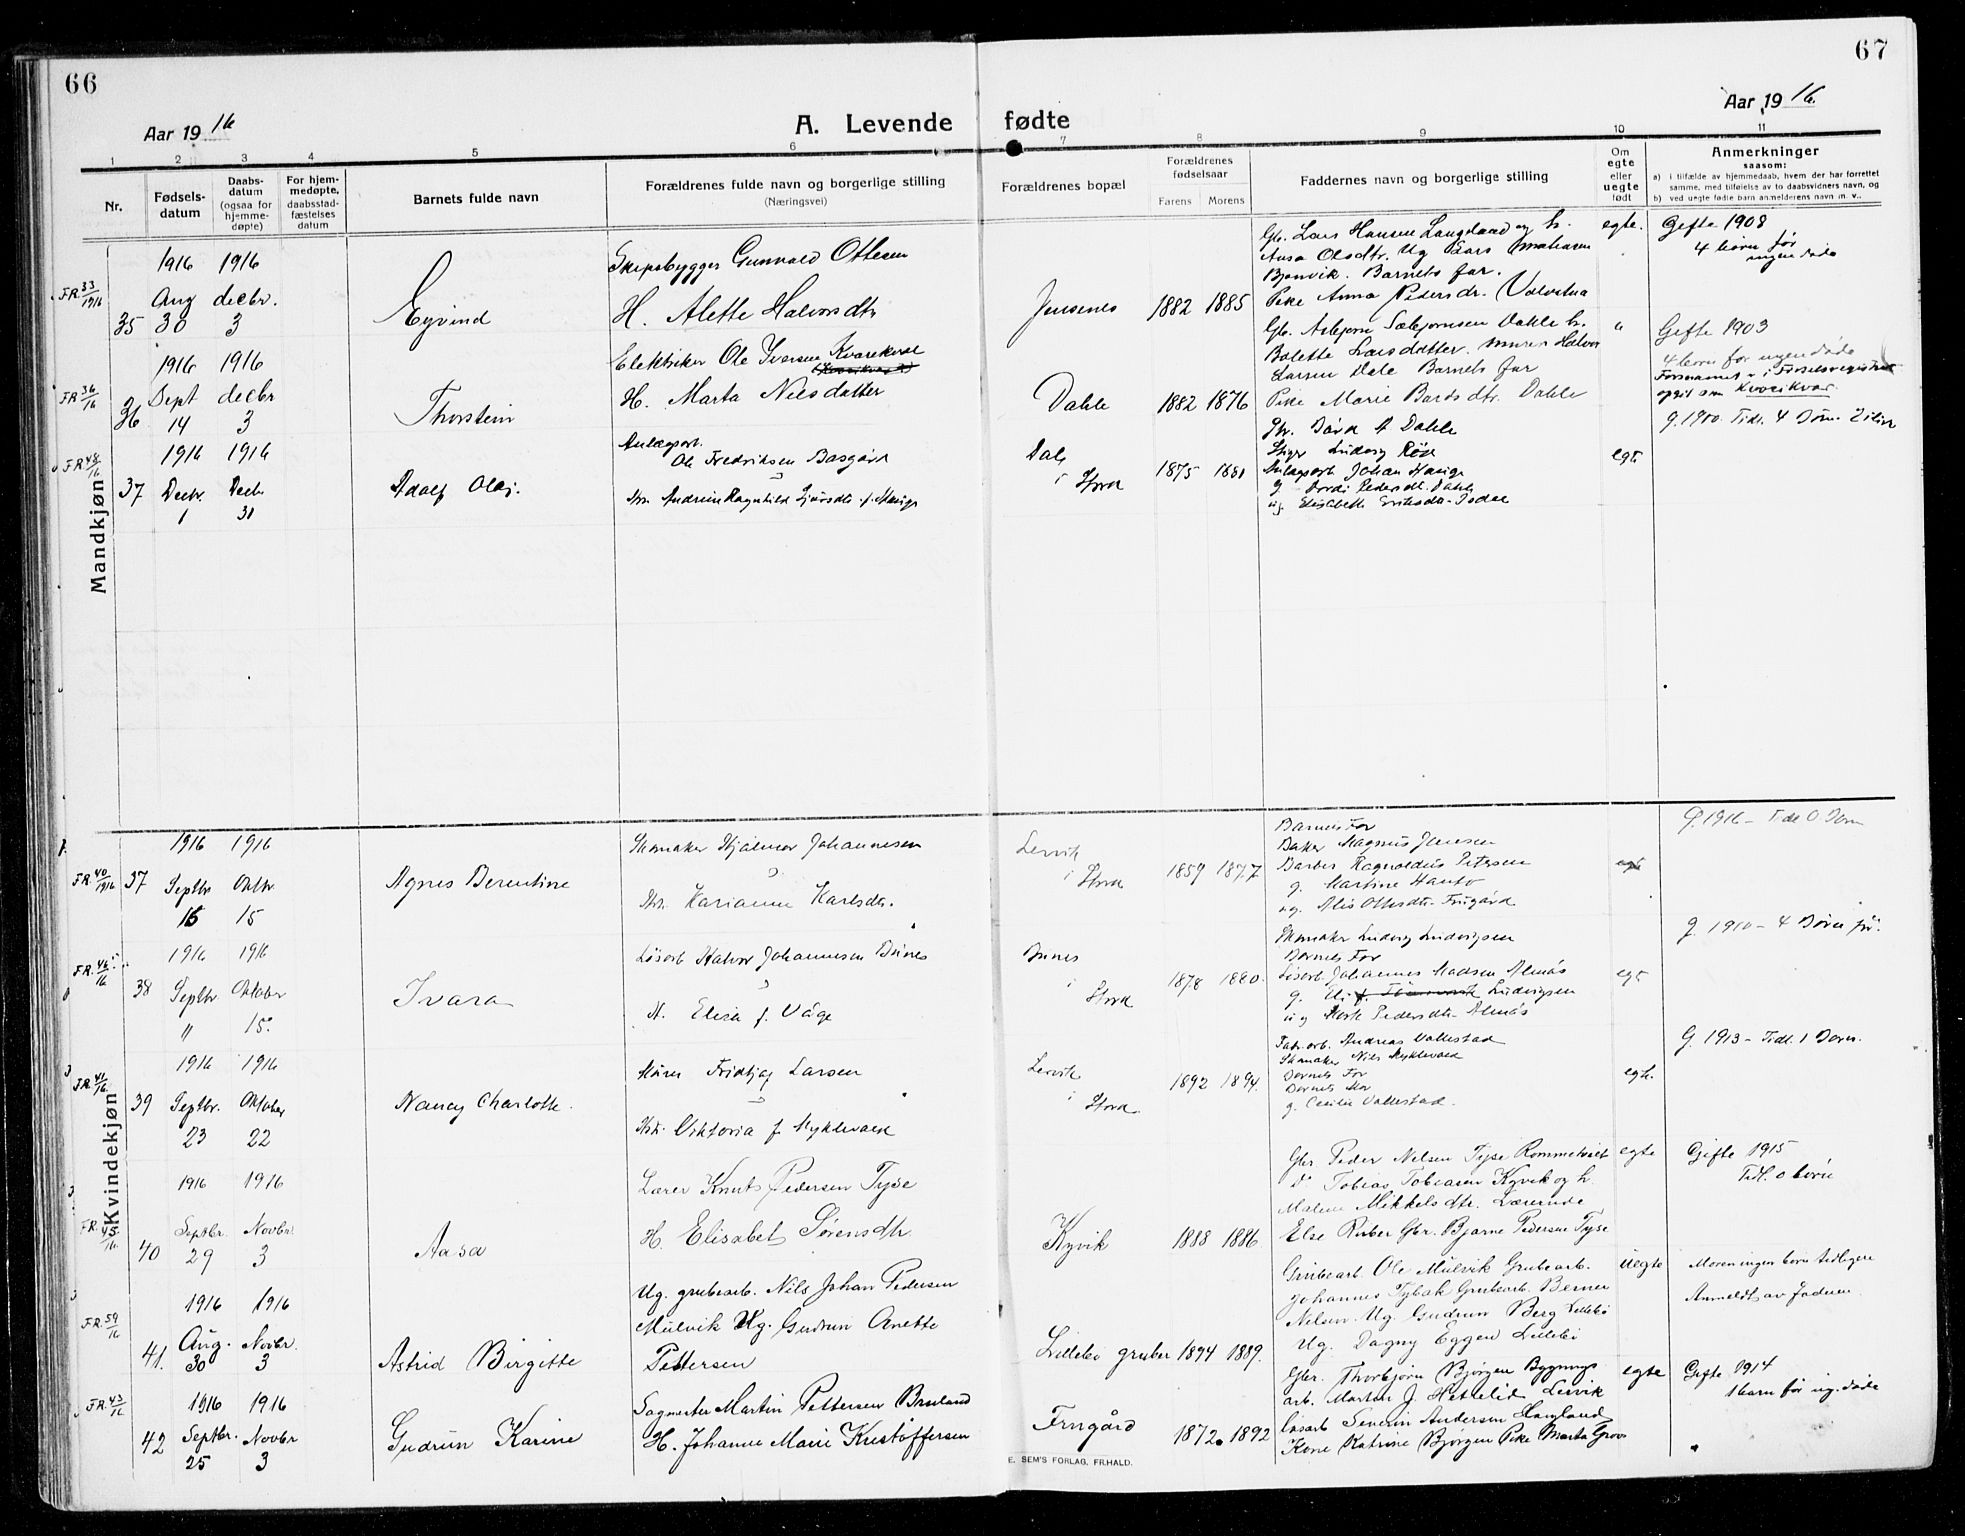 66
67
Aar 1916
A. Levende fødte
Aar 1916.
1 2 3 4 5 6 7 8 9 10 11
Nr.
Fødsels-
datum
Daabs-
datum
(ogsaa for
hjemme-
døpte)
For hjem-
medøpte,
daabsstad-
fæstelses
datum
Barnets fulde navn
Forældrenes fulde navn og borgerlige stilling
(Næringsvei)
Forældrenes bopæl
Forældrenes
fødselsaar
Farens Morens
Faddernes navn og borgerlige stilling
Om
egte
eller
uegte
født
Anmerkninger
saasom:
a) i tilfælde av hjemmedaab, hvem der har forrettet
samme, med tilføielse av to daabsvidners navn, og
b) ved uegte fødte barn anmelderens navn m. v..
Mandkjøn
FR. 33/1916
35
1916 Aug 30
1916 decbr. 3
Eyvind
Skipsbygger Gunvald Ottesen
H. Alette Halvorsdtr
Jensenes
1882 1885
Gbr. Lars Hansen Langeland og h.
Anna Olsdtr. Ug Lars
Bjønvik. Barnets far.
Pike Anna Pedersdr. Valvatna
egte.
Gefte 1908
4 børn før
ingen døde
FR 36/16
36
1916 Sept 14
1916 decbr 3
Thorstein
Elektriker Ole Iversen
H. Marta Nilsdatter
Dahle
1882 1876
Gb. Asbjørn Sæbjørnsen Dahle h.
Bolette Larsdatter. murer Halvor
Larsen Dale Barnets far
Pike Marie Bårdsdtr. Dahle
"
Gefte 1903
4 børn før ingen døde
i Fødselsregistret
opgit som Kvorikvar.
FR. 48/16
37
1916 Decbr. 1
1916 Decbr 31
Adolf Olai.
Anlægsarb.
Ole Fredriksen Basgård
Hr. Bård A Dahle
Ludvig Røse
Dale
i Stord
1875 1881
Anlægsarb Johan Hauge
g. Bordi Pedersdtr. Dahle
ug. Elisabeth Eriksdtr
egte
g. 1900. Tidl. 4 Børn 2 ilive
Kvindekjøn
FR. 40/1916
37
1916 Septbr 16
1916 Oktbr. 15
Agnes Berentine
Skomaker Hjalmar Johannesen
Hr. Karianne Karlsdtr.
Lervik
i Stord
1859 1877
Barnets Far
Baker Magnus Jensen
Barber Ragnvaldus Petersen
g. Martine
ug. Alis Olsdtr. Frugård
egte
G. 1916 - Tidl 0 Børn
FR. 46/16
38
1916 Septbr. "
1916 Oktober 15.
Ivara
Løsarb Halvor Johannesen Bunes
H. Elisa f. Våge
Bunes
i Stord
1878 1880.
Skomaker Ludvig Ludvigsen
Barnets Far
Løsarb. Johannes Madsen Almås
g. Eli Ludvigsen
ug Pedersdtr Almås
egte
g. 1910 - 4 Børn før.
FR. 41/16
39
1916 Septbr. 23
1916 Oktober 22
Nancy Charlotte.
Murer Fridtjof Larsen
Hr. Viktoria f. Myklevold
Lervik
i Stord.
1892 1894.
Fabr. arb. Andreas Vallestad
Skomaker Nils Myklevold
Barnets Far
Barnets Mor
g. Cecilie Vallestad.
egte.
G. 1913 - Tidl. 1 Børn.
FR. 45/16.
40
1916 Septbr. 29
1916 Novbr. 3
Aasa
Lærer Knut Pedersen Tyse
H. Elisabet Sørensdtr
Kyvik
1888 1886
Gbr Peder Nilsen Tyse Rommetveit
Do Tobias Tobiasen Kyvik og h.
Malene Mikkelsdtr. Lærerinde
Else Riber Gbr. Bjarne Pedersen Tyse
egte
Gifte 1915
Tidl. 0 børn
FR. 59/16
41.
1916 Aug. 30
1916 Novbr. 3
Astrid Birgitte
Ug. grubearb. Nils Johan Pedersen
Mulvik Ug. Gudrun Anette
Pettersen
Lillebø gruber
1894 1889.
Grubearb. Ole Mulvik Grubearb.
Johannes Tybak Grubearb. Berner
Nelson. Ug. Gudrun Berg Lillebø
Ug. Dagny Eggen Lillebø
Uegte
Moren ingen børn tidligere
Anmeldt av faderen.
FR. 43/16
42
1916 Septbr. 25
1916 Novbr 3
Gudrun Karine
Sagmester Martin Pettersen Bruland
H. Johanne Marie Kristoffersen
Frugård
1872. 1892
Gbr. Thorbjørn Bjørgen Bygnings
arb. Morten J. Hetlelid Lervik
Løsarb Severin Andersen Haugland
Kone Katrine Bjørgen Pike Marta Grov
egte
Gifte 1914
1 barn før ug. døde
E. SEM'S FORLAG, FR.HALD.